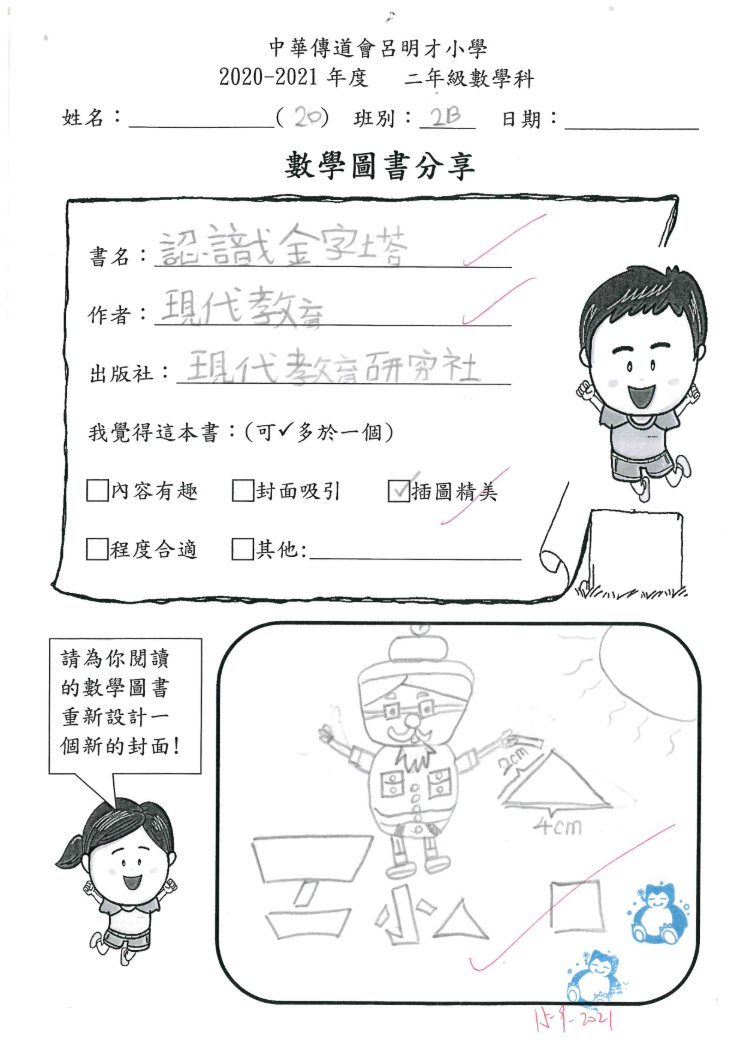 中華傳道會呂明才小學
2020-2021 年度 二年級數學科
姓名：____________( 20) 班別： 2B 日期：____________
數學圖書分享
書名：認識金字塔
作者：現代教育
出版社：現代教育研究社
我覺得這本書：(可✓多於一個)
□內容有趣 □封面吸引 ☑插圖精美
□程度合適 □其他:____________
請為你閱讀
的數學圖書
重新設計一
個新的封面!
2cm
4cm
15-9-2021